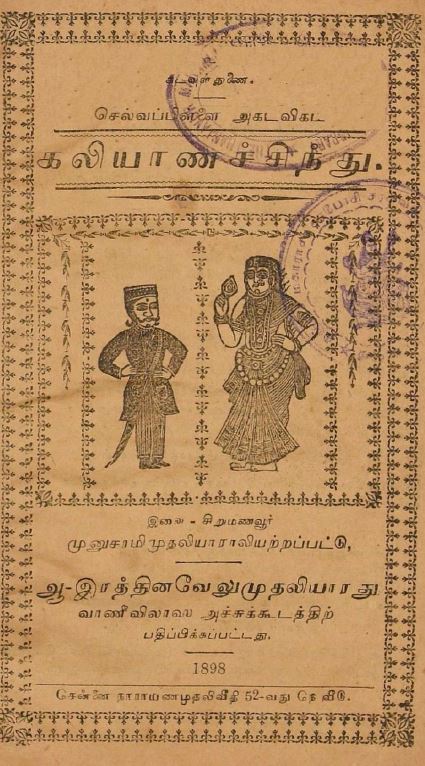 கடவுள் துணை.
செல்வப்பிள்ளை அகடவிகட
கலியாணச்சிந்து.
இவை - சிறுமணவூர்
முனுசாமிமுதலியாராலியற்றப்பட்டு,
ஆ-இரத்தினவேலுமுதலியாரது
வாணீவிலாஸ அச்சுக்கூடத்திற்
பதிப்பிக்கப்பட்டது.
1898
சென்னை நாராயணமுதலிவீதி 52-வது நெ வீடு.